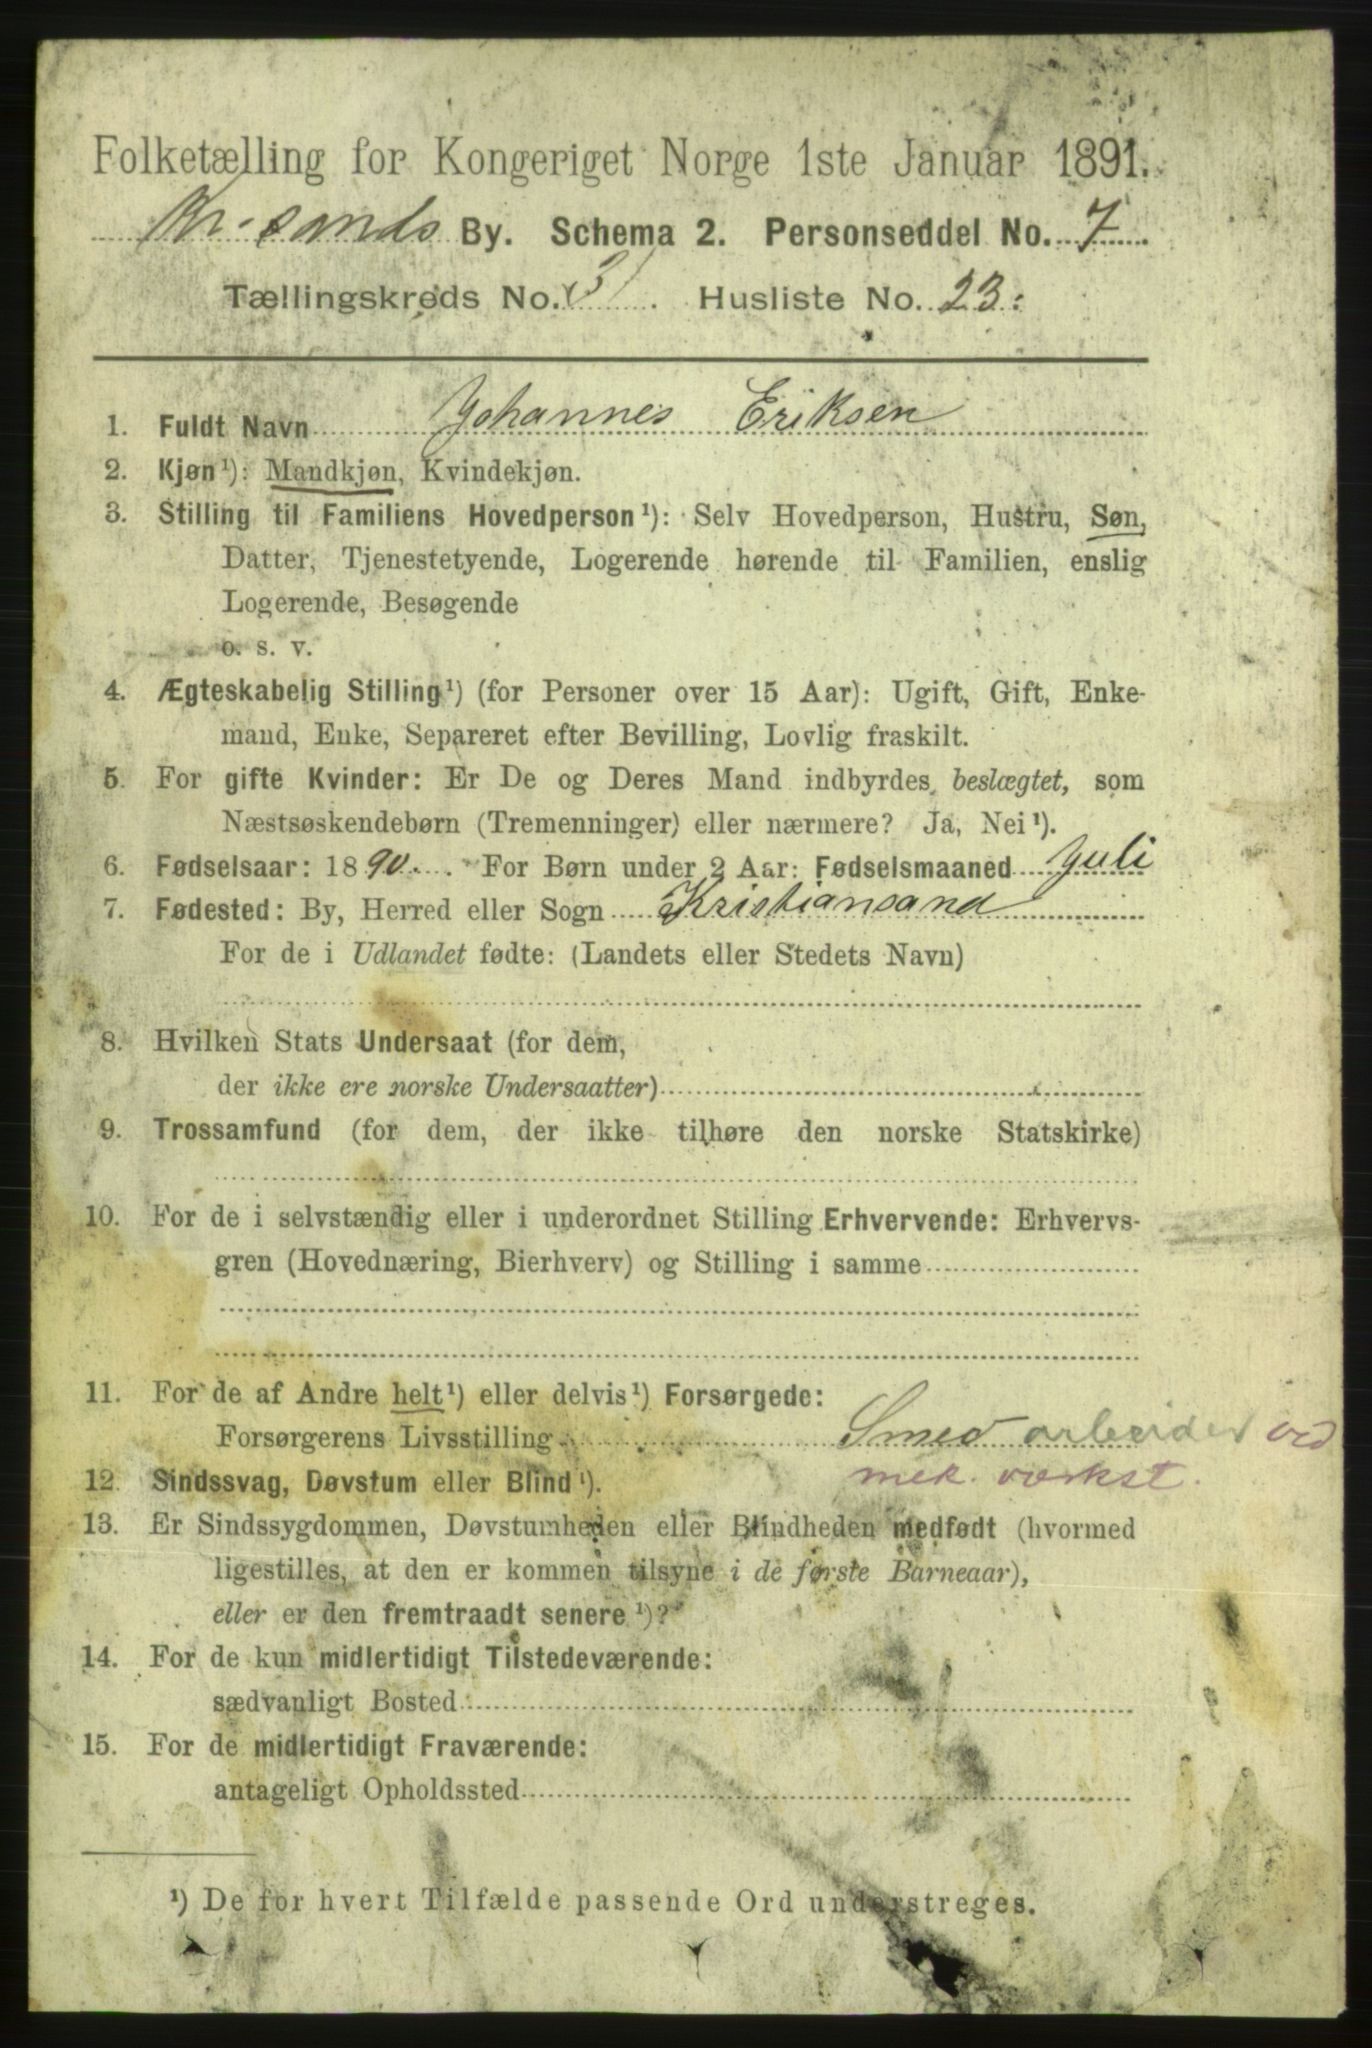 Folketælling for Kongeriget Norge 1ste Januar 1891.
Kr.sands By. Schema 2. Personseddel No. 7
Tællingskreds No. 31. Husliste No. 23.
1. Fuldt Navn Johannes Eriksen
2. Kjøn¹): Mandkjøn, Kvindekjøn.
3. Stilling til Familiens Hovedperson¹): Selv Hovedperson, Hustru, Søn,
Datter, Tjenestetyende, Logerende hørende til Familien, enslig
Logerende, Besøgende
o. s. v.
4. Ægteskabelig Stilling¹) (for Personer over 15 Aar): Ugift, Gift, Enke-
mand, Enke, Separeret efter Bevilling, Lovlig fraskilt.
5. For gifte Kvinder: Er De og Deres Mand indbyrdes beslægtet, som
Næstsøskendebørn (Tremenninger) eller nærmere? Ja, Nei¹).
6. Fødselsaar: 1890. For Børn under 2 Aar: Fødselsmaaned Juli
7. Fødested: By, Herred eller Sogn Kristiansand
For de i Udlandet fødte: (Landets eller Stedets Navn)
8. Hvilken Stats Undersaat (for dem,
der ikke ere norske Undersaatter)
9. Trossamfund (for dem, der ikke tilhøre den norske Statskirke)
10. For de i selvstændig eller i underordnet Stilling Erhvervende: Erhvervs-
gren (Hovednæring, Bierhverv) og Stilling i samme
11. For de af Andre helt¹) eller delvis¹) Forsørgede:
Forsørgerens Livsstilling Smed arbeider ved
mek. værkst.
12. Sindssvag, Døvstum eller Blind¹).
13. Er Sindssygdommen, Døvstumheden eller Blindheden medfødt (hvormed
ligestilles, at den er kommen tilsyne i de første Barneaar),
eller er den fremtraadt senere¹)?
14. For de kun midlertidigt Tilstedeværende:
sædvanligt Bosted
15. For de midlertidigt Fraværende:
antageligt Opholdssted
¹) De for hvert Tilfælde passende Ord understreges.